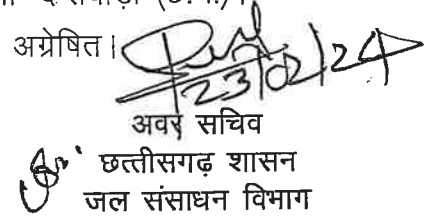 (छ.ग.)।
अग्रेषित।
23/02/24
अवर सचिव
छत्तीसगढ़ शासन
जल संसाधन विभाग